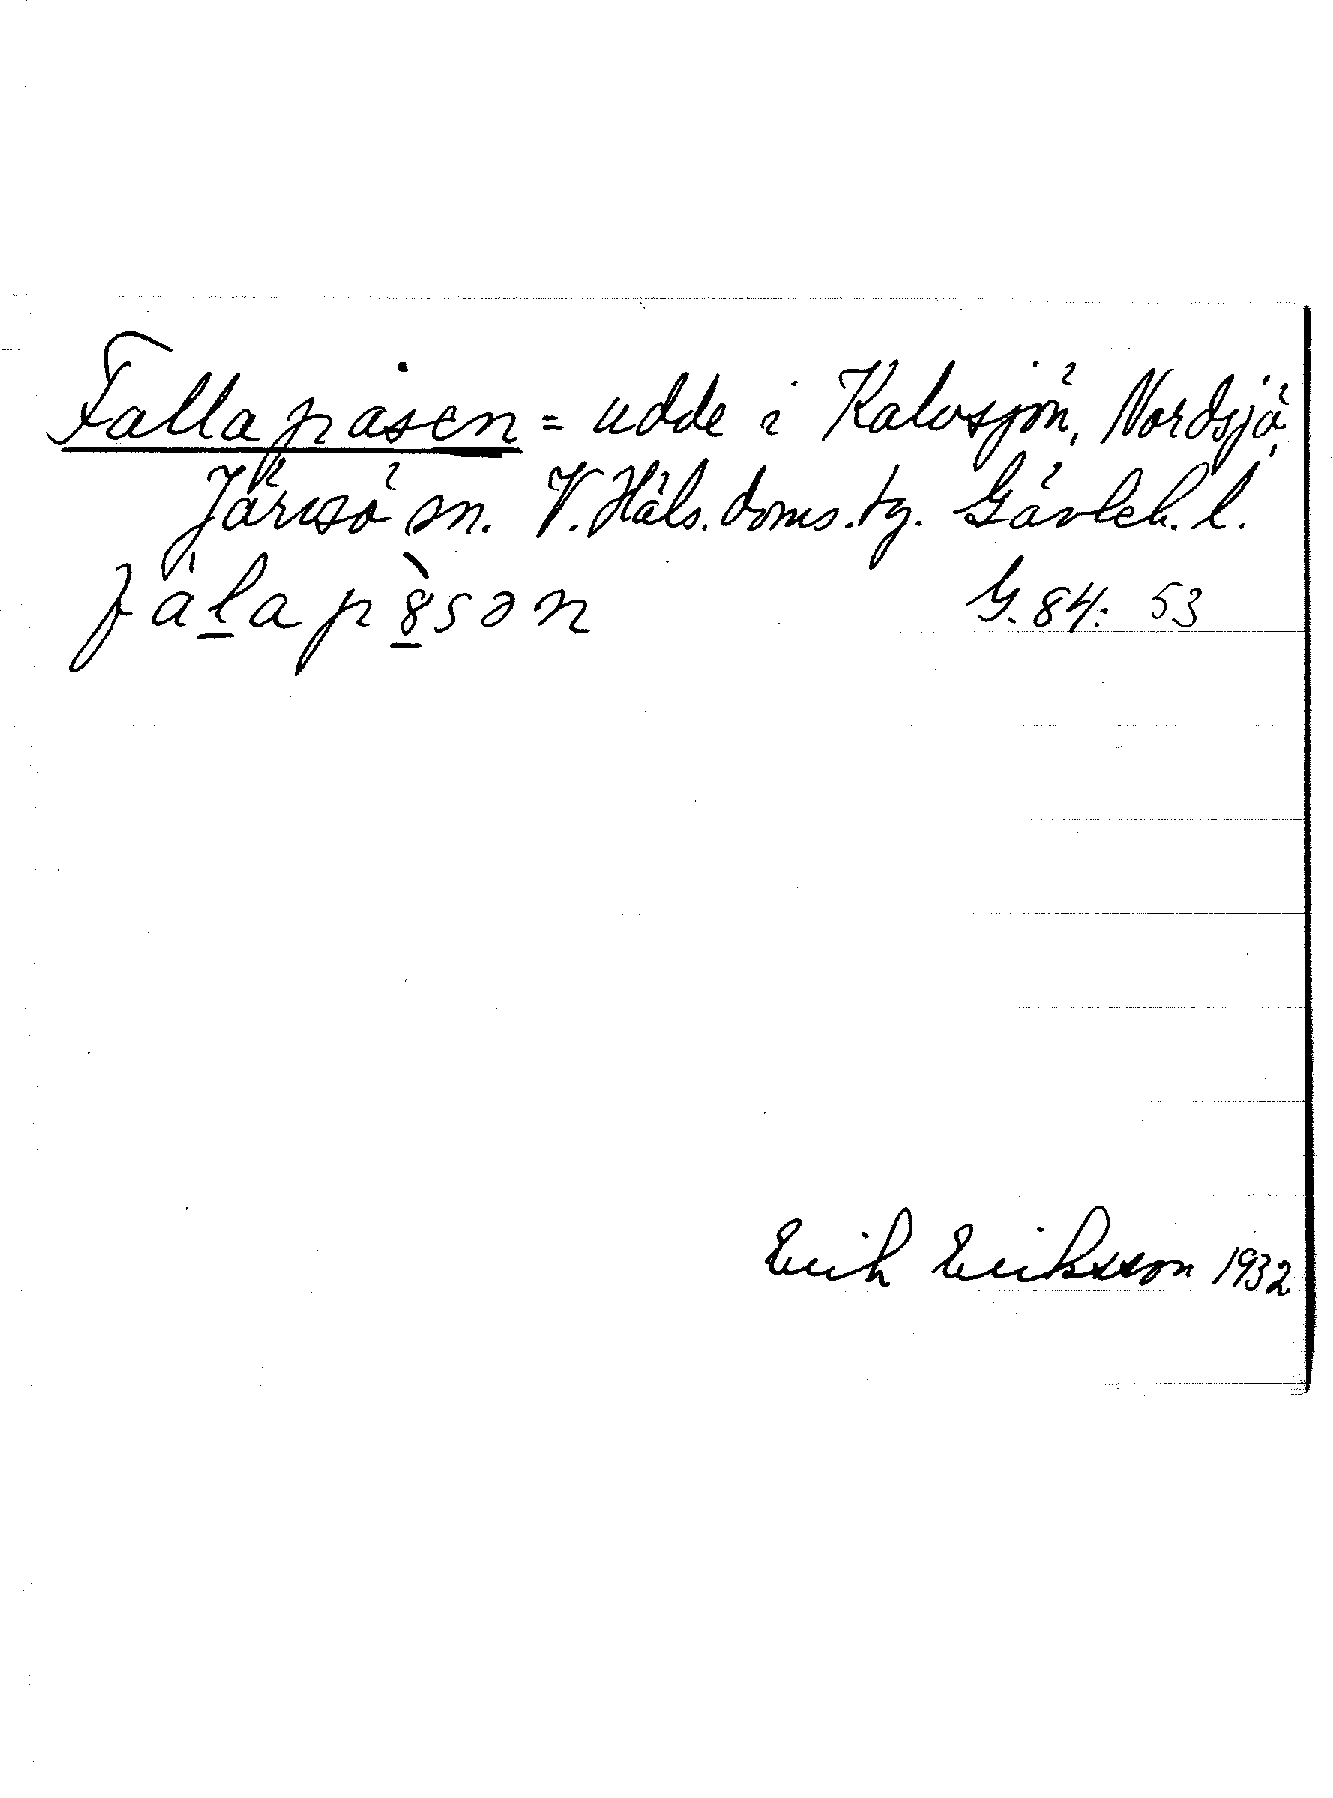 Fallapåsen = udde i Kalvsjön, Nordsjö,
Järvsö sn. V. Häls. doms. tg. Gävleb. l.
fálap8̀sən G. 84: 53
Erik Eriksson 1932